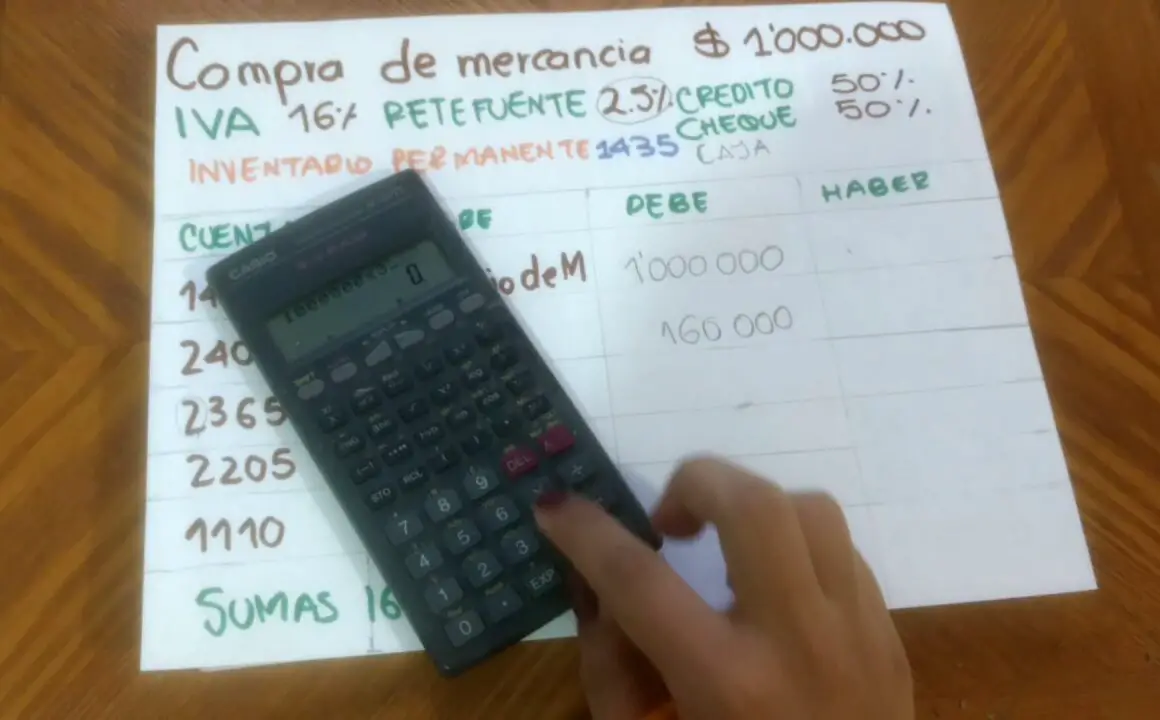 Compra de mercancia $ 1'000.000
IVA 16% RETEFUENTE 2.5% CREDITO 50%
CHEQUE 50%
INVENTARIO PERMANENTE 1435 CAJA
DEBE HABER
CASIO
io de M 1'000 000
240 160 000
2365
2205
1110
SUMAS 16
DEL
STO RCL
7 8 9
4 5 6
1 2 3
0 . EXP